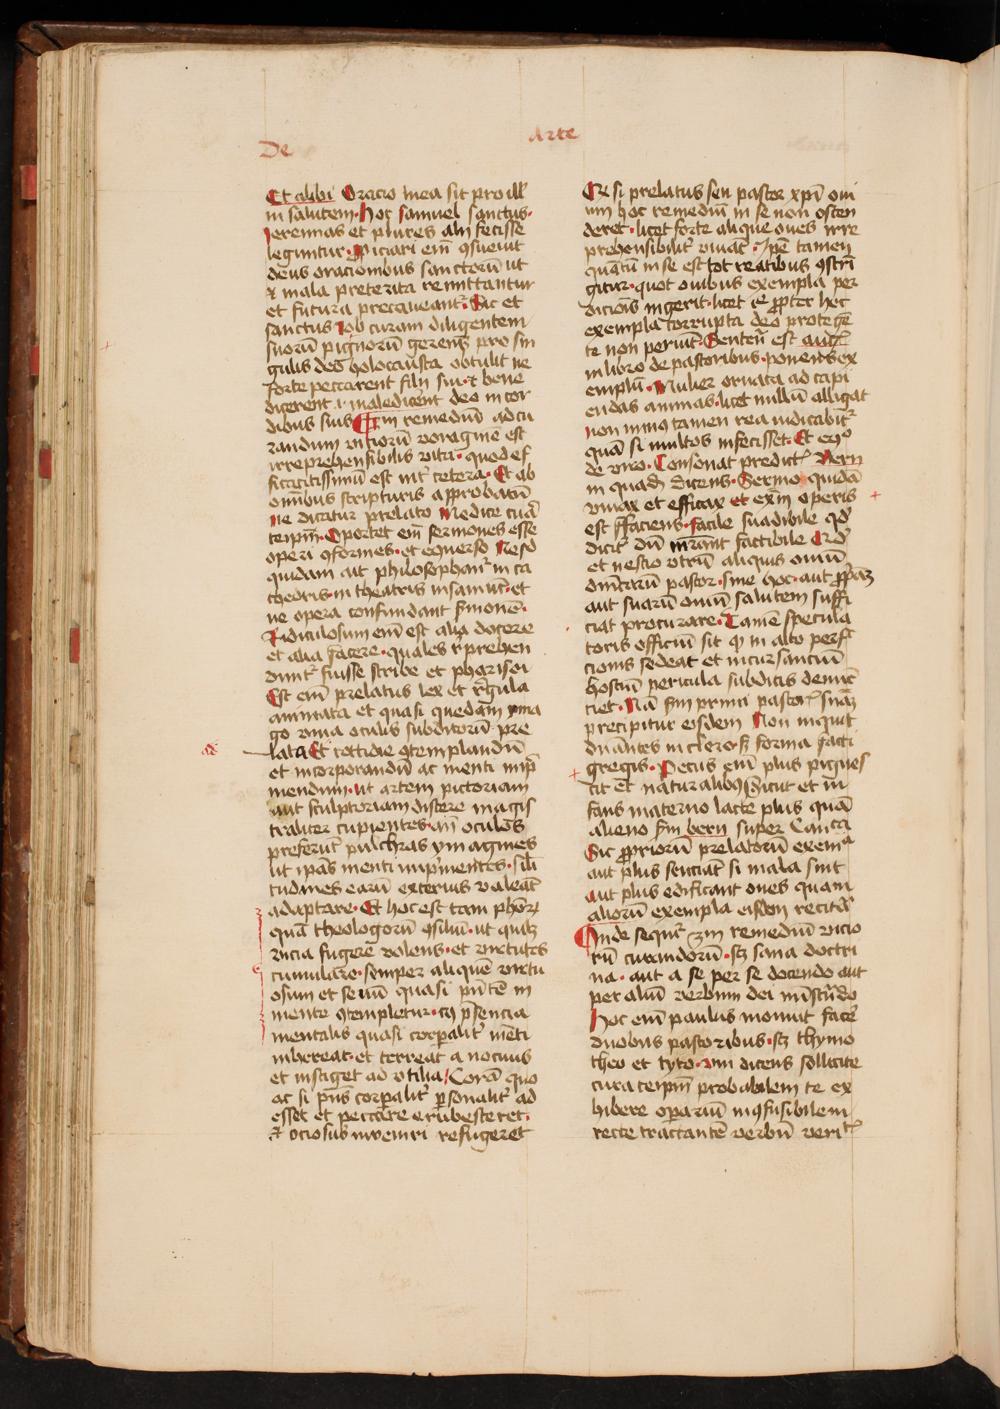 De
Arte
Et alibi Oracio mea sit pro ill'
in salutem. hoc Samuel sanctus.
Jeremias et plures alij fecisse
leguntur. eni͂ ꝯsueuit
deus oracionibus sanctorū ut
et mala preterita remittantur
et futura precaueant'. Sic et
sanctus Job curam diligentem
suorū pignorū gerens pro sin
gulis deo holocausta obtulit ne
forte peccarent filij sui. et bene
dicerent .i. maledicent deo in cor
dibus suis remediū ad cu
randum viciorū voraginē est
irreprehensibilis vita. quod ef
ficacissimū est int' cetera. Et ab
omībus scripturis approbatū
ne dicatur prelato Medice curā
teip̄m. Oportet em̄ sermones esse
operi ꝯformes. et eꝯuerso Nescio
quidam ait philosophant' in ca
thedris. in theatris insaniūt. et
ne opera confundant s̄monē.
Ridiculosum em̄ est alia docere
et alia facere. quales r̄prehen
dunt' fuisse scribe et pharisei
Est em̄ prelatus lex et r̄gula
animata et quasi quedam yma
go viua oculis subditorū pre
lata Et cottidie ꝯtemplandū
et incorporandū ac menti imp̄
mendum. ut artem pictoriam
aut sculptoriam discere magis
traliter cupientes. an̄ oculos
preferūt pulchras ymagines
ut ip̄as menti imp̄mentes. sil̄i
tudines earū exterius valeāt
adaptare. Et hoc est tam ph̄orꝝ
quā theologorū ꝯsiliū. ut quilꝫ
vicia fugere volens. et virtutes
cumulare. semper aliquē virtu
osum et seuū quasi pn̄tē in
mente ꝯtempletur. cꝰ p̄sencia
mentalis quasi corp̄alit' mēti
inhereat. et terreat a nociuis
et instiget ad vtilia. Corā quo
ac si pn̄s corp̄alit' p̄sonalit' ad
esset et peccare erubesceret.
et ociosus inveniri refugeret
ad
Et si prelatus seu pastor xp̄i oui
um hoc remediū in se non osten
deret. licet forte alique oues irre
prehensibilit' viuāt. Ip̄e tamen
quātū in se est tot reatibus ꝯstri
gitur. quot ouibus exempla per
dicionis ingerit. licet p̄pter hoc
exempla corrupta deo protegē
te non periit. Sentenc̄ est aug'
in libro de pastoribus. ponens ex
emplū. Mulier ornata ad capi
endas animas. licet nullū alligat
non minꝰ tamen rea iudicabit'
quā si multos infecisset. Et eꝯº
de viro. Consonat predict' Bern
in quadā dicens. Sermo quidā
viuax et efficax et exm̄ operis
est faciens. facile suadibile qd̄
dicit' dū mr̄ant factibile
et nescio vtrū aliquis ouiū
dn̄icarū pastor. sine hoc. aut p̄p̄aꝫ
aut suarū ouiū salutem suffi
ciat procurare. Tamē specula
toris officiū sit qꝫ in alto perfe
cionis sedeat et incursanciū
hostiū pericula subditis denūc
ciet. Nā s̄m primi pastor' snīaꝫ
precipitur eisdem Non inquit
dn̄antes in clero. sꝫ forma facti
gregis. Pecus em̄ plus pigues
cit et naturalibꝫ. Sicut et in
fans materno lacte plus quā
alieno s̄m bern super Cantica
Sic ꝓpriorū prelatorū exemᵃ
aut plus senciāt si mala sint
aut plus edificant oues quam
aliorū exempla eisdem recitā'
Inde sequit' 3m remediū vicio
rū curandorū. sꝫ sana doctri
na. aut a se per se docendo aut
per aliū verbum dei mīst'ādo
hoc em̄ paulus monuit facē
duobus pastoribus. sꝫ thymo
theo et tyto. vni dicens sollicite
cura teip̄m probabilem te ex
hibere operariū incōfusibilem
recte tractantē verbū verit'